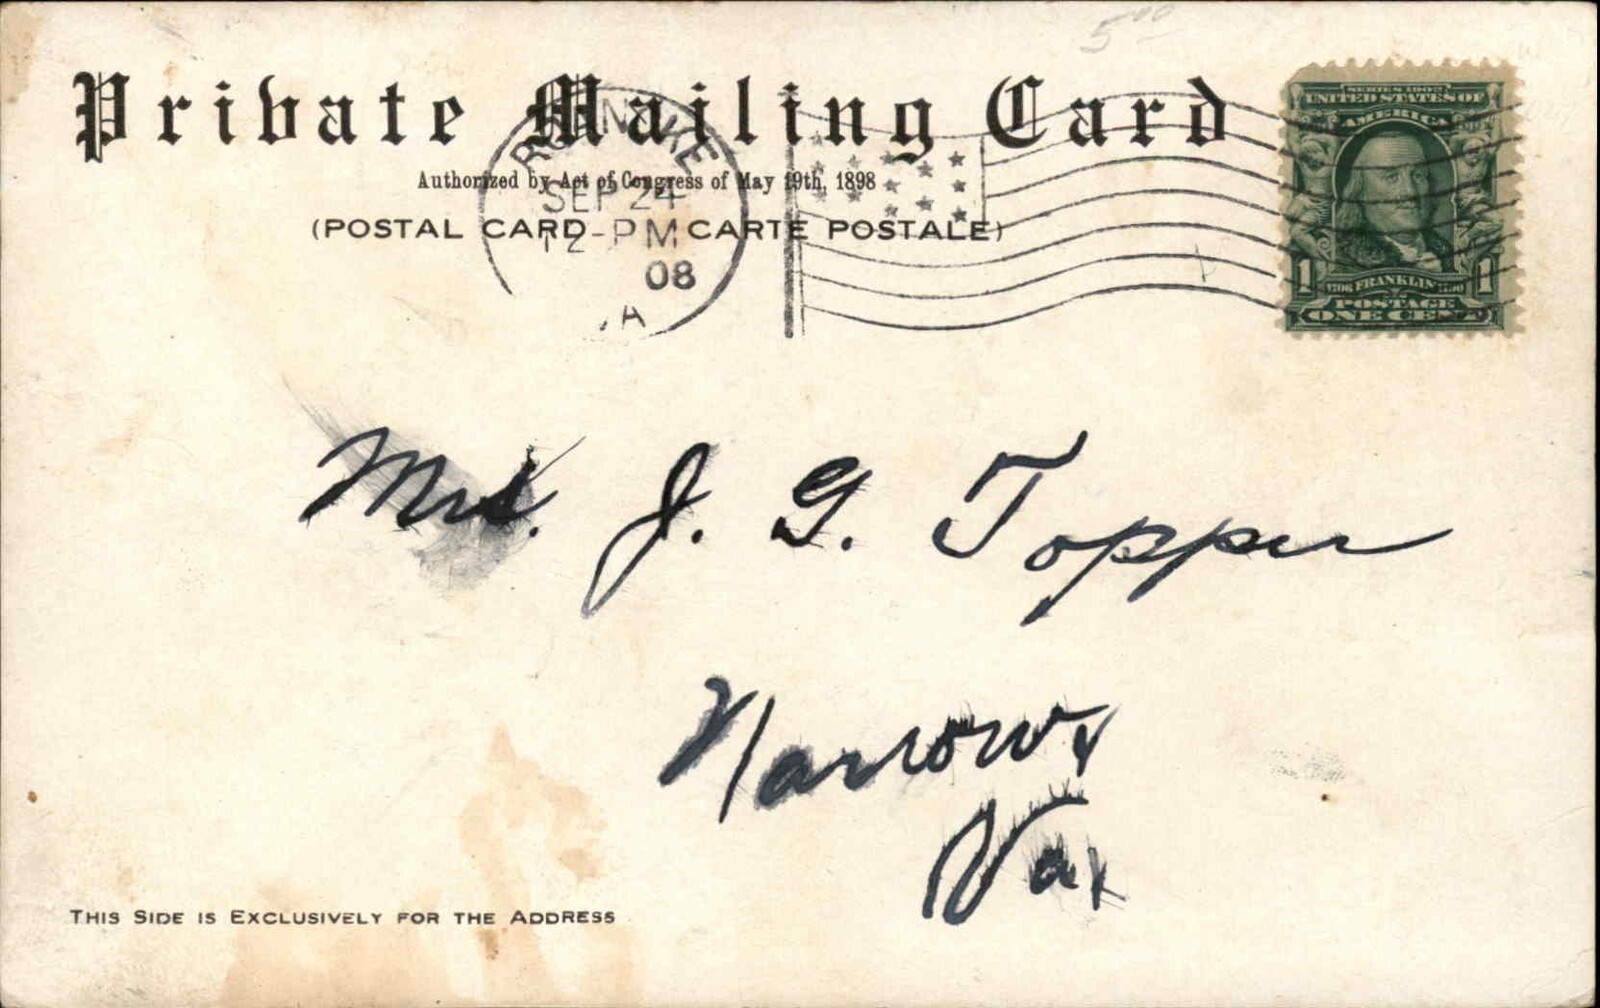 5.00
Private Mailing Card
Authorized by Act of Congress of May 19th, 1898
(POSTAL CARD-CARTE POSTALE)
ROANOKE
SEP 24
12-PM
08
VA
SERIES 1902
UNITED STATES OF
AMERICA
1 1706 FRANKLIN 1790 1
POSTAGE
ONE CENT
Mrs. J. G. Topper
Narrows
Va.
THIS SIDE IS EXCLUSIVELY FOR THE ADDRESS